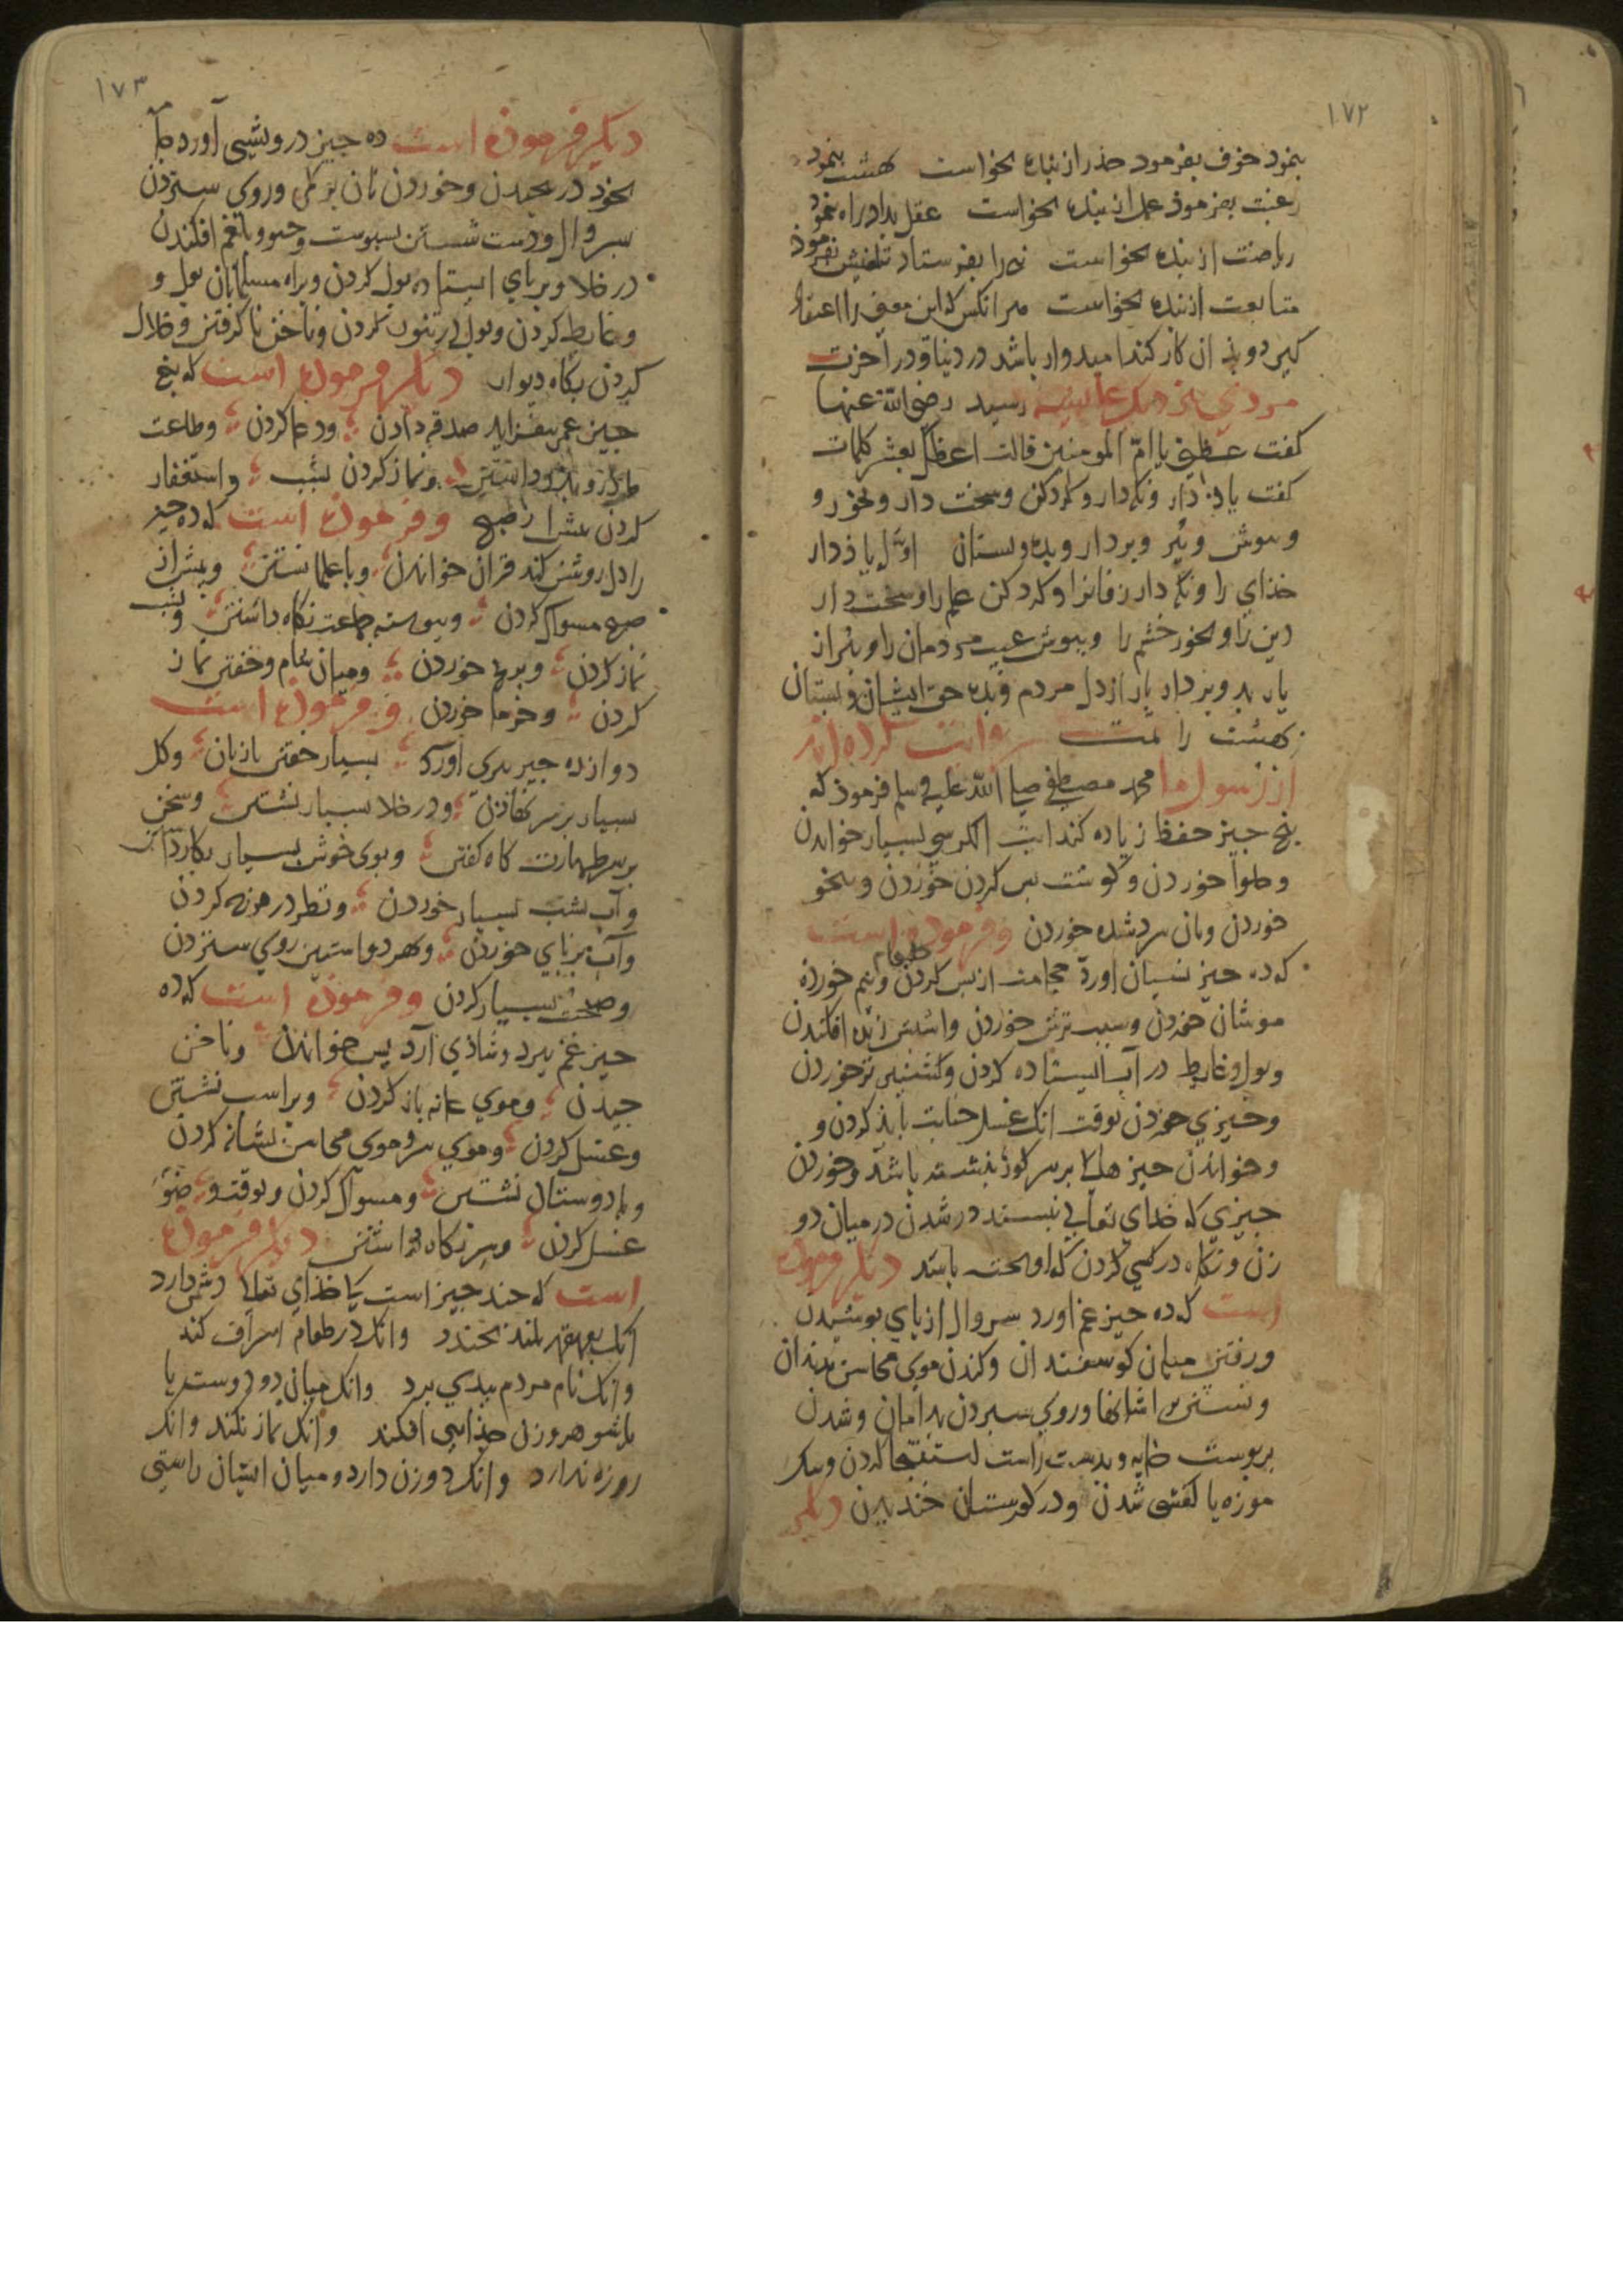 ١٧٢
بنمود خوف بفرمود حذر از بنده بخواست بهشت بنمود
رغبت بفرموذ عمل از بنده بخواست عقل بداد راه بنمود
ریاضت از بنده بخواست نبی را بفرستاد بفرموذ
متابعت از بنده بخواست هر انکس که این معنی را اعتقاد
کیرد و بذان کار کند امیدوار باشد در دنیا و در آخرت
مردی بنزدیک عایشه رسید رضی الله عنها
کفت عظنی یا امّ المومنین قالت اعظک بعشر کلمات
کفت یاذ دار و نکه دار و کرد کن و سخت دار و بخور و
و بپوش و ببُر و بردار و بده و بستان اوّل یاذ دار
خذای را و نکه دار زفانرا و کرد کن علم را و سخت دار
دین را و بخور خشم را و بپوش عیب مردمان را و ببُر از
یار بد و بردار بار از دل مردم و بده حق ایشان و بستان
بهشت را تمت روایت کرده اند
از رسول ما محمد مصطفی صلی الله علیه و سلم فرموذ که
پنج جیز حفظ زیاده کند ایت الکرسی بسیار خواندن
و حلوا خوردن و کوشت بس کردن خوردن و نخو
خوردن و نان سرد شده خوردن و فرموده است
که ده جیز نسیان اورد حجامت از پس کردن و نیم خورده طعام
موشان خوردن و سیب ترش خوردن و اشپش زنده افکندن
و بول و غایط در آب ایستاده کردن و کشنیز تر خوردن
و جیزی خوردن بوقت انک غسل جنابت باید کردن و
و خواندن جیزها کی بر سر کور نبشته باشد و خوردن
جیزی که خذای تعالی نپسندد در شدن در میان دو
زن و نکاه در کسی کردن که اویخته باشد دیکر فرموده
است که ده جیز غم اورد سروال از پای پوشیدن
و رفتن میان کوسفندان و کندن موی محاسن بدندان
و نشستن بر استانها و روی ستردن بدامان و شدن
بر پوست خایه و بدست راست استنجا کردن و بیک
موزه یا کفش شدن و در کورستان خندیدن دیکر
١٧٣
دیکر فرموده است ده جیز درویشی آورد
بخود در بجیدن و خوردن نان و روی ستردن
سروال و دست شستن بسبوست و جو و بلغم افکندن
در خلا و بر پای ایستاده بول کردن و براه مسلمانان بول و
و غایط کردن و بول در تنور کردن و ناخن ناکرفتن و خلال
کردن بکاه دیوار دیکر فرموده است که پنج
جیز عمر بیفزاید صدقه دادن و دعا کردن و طاعت
ماذر و پذر داشتن و نماز کردن بشب و استغفار
کردن بیش از صبح و فرموده است که ده جیز
را دل روشن کند قران خواندن و با علما نشستن و بیش از
صبح مسواک کردن و پیوسته جماعت نکاه داشتن و بشب
نماز کردن و برنج خوردن و میان شام و خفتن نماز
کردن و خرما خوردن و فرموده است
دوازده جیز پیری آورد بسیار خفتن با زنان و کل
بسیار بر سر نهاذن و در خلا بسیار نشستن و سخن
بر سر طهارت کاه کفتن و بوی خوش بسیار بکار داشتن
و آب بشب بسیار خوردن و نظر در مونه کردن
و آب بر پای خوردن و بهر دو استین روی ستردن
و صحبت بسیار کردن و فرموده است که ده
جیز غم ببرد و شاذی آرد یس خواندن و ناخن
جیدن و موی عانه باز کردن و بر اسب نشستن
و غسل کردن و موی سر و موی محاسن شانه کردن
و با دوستان نشستن و مسواک کردن و بوقت وضو
غسل کردن و سر نکاه داشتن دیکر فرموده
است که جند جیز است کی خذای تعالی دشمن دارد
آنک بقهقهه بلند بخندد وانک در طعام اسراف کند
وانک نام مردم ببدی برد وانک میان دو دوست یا
یا شوهر و زن جدایی افکند وانک نماز نکند وانک
روزه ندارد وانک دو زن دارد و میان ایشان راستی